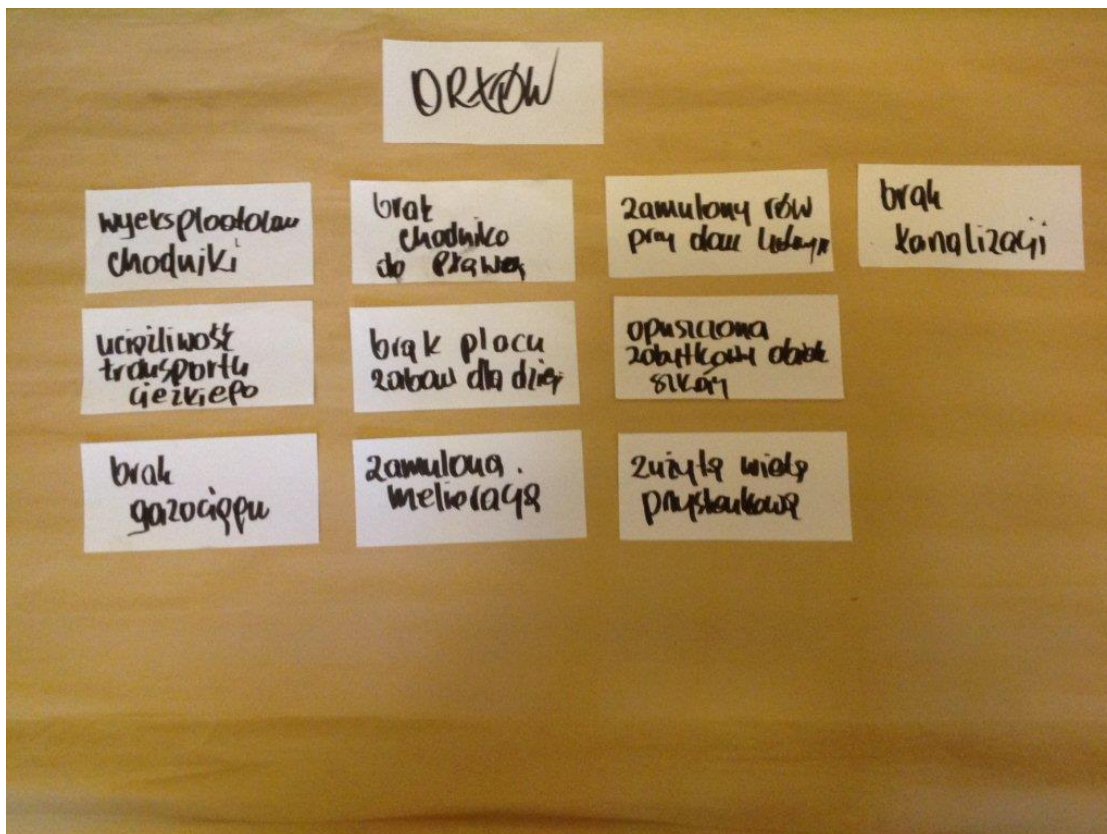 ORŁÓW
wyeksploatowan
chodniki
brak
chodnika
do
zamulony rów
przy
brak
kanalizacji
uciążliwość
transportu
ciężkiego
brak placu
zabaw dla dzieci
opuszczona
zabytkowy obiekt
szkoły
brak
gazociągu
zamulona
melioracja
zużyta wieża
przystankowa